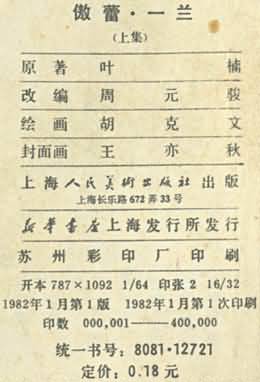 傲蕾·一兰
(上集)
原著 叶楠
改编 周元骏
绘画 胡克文
封面画 王亦秋
上海人民美術出版社出版
上海长乐路672弄33号
新华書店上海发行所发行
苏州彩印厂印刷
开本 787×1092 1/64 印张 2 16/32
1982年1月第1版 1982年1月第1次印刷
印数 000,001——400,000
统一书号：8081·12721
定价：0.18元